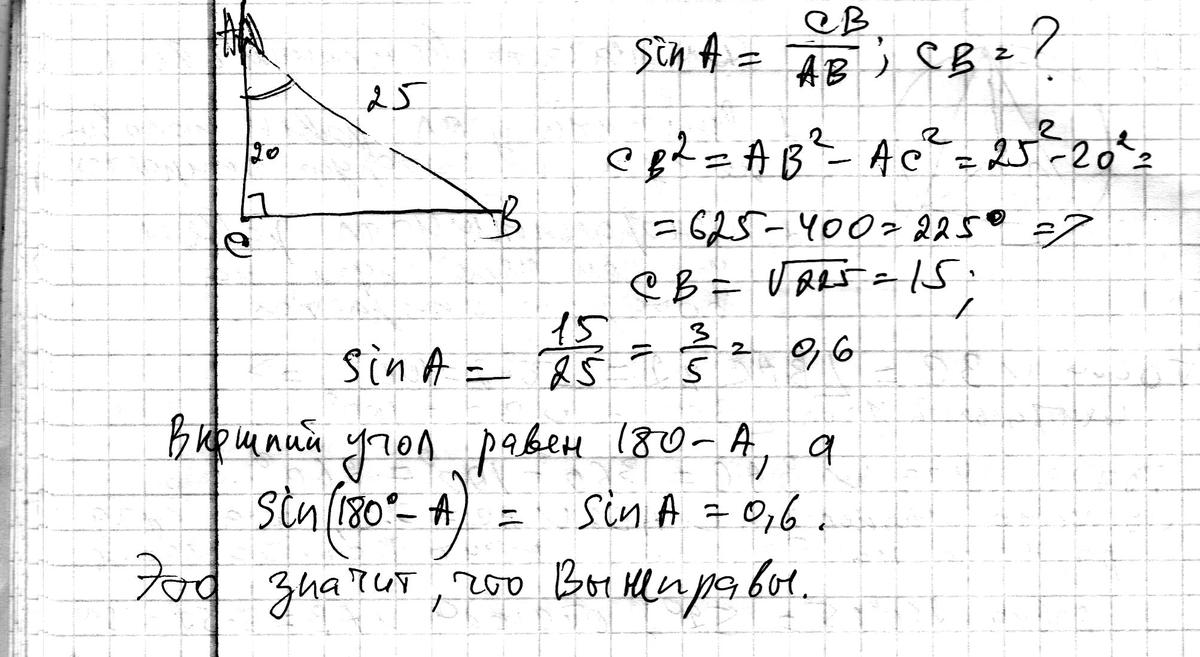 A
25
20
C
B
sin A = CB/AB; CB = ?
CB² = AB² - AC² = 25² - 20² =
= 625 - 400 = 225 =>
CB = √225 = 15;
sin A = 15/25 = 3/5 = 0,6
Внешний угол равен 180 - A, а
sin(180° - A) = sin A = 0,6.
Это значит, что Вы неправы.